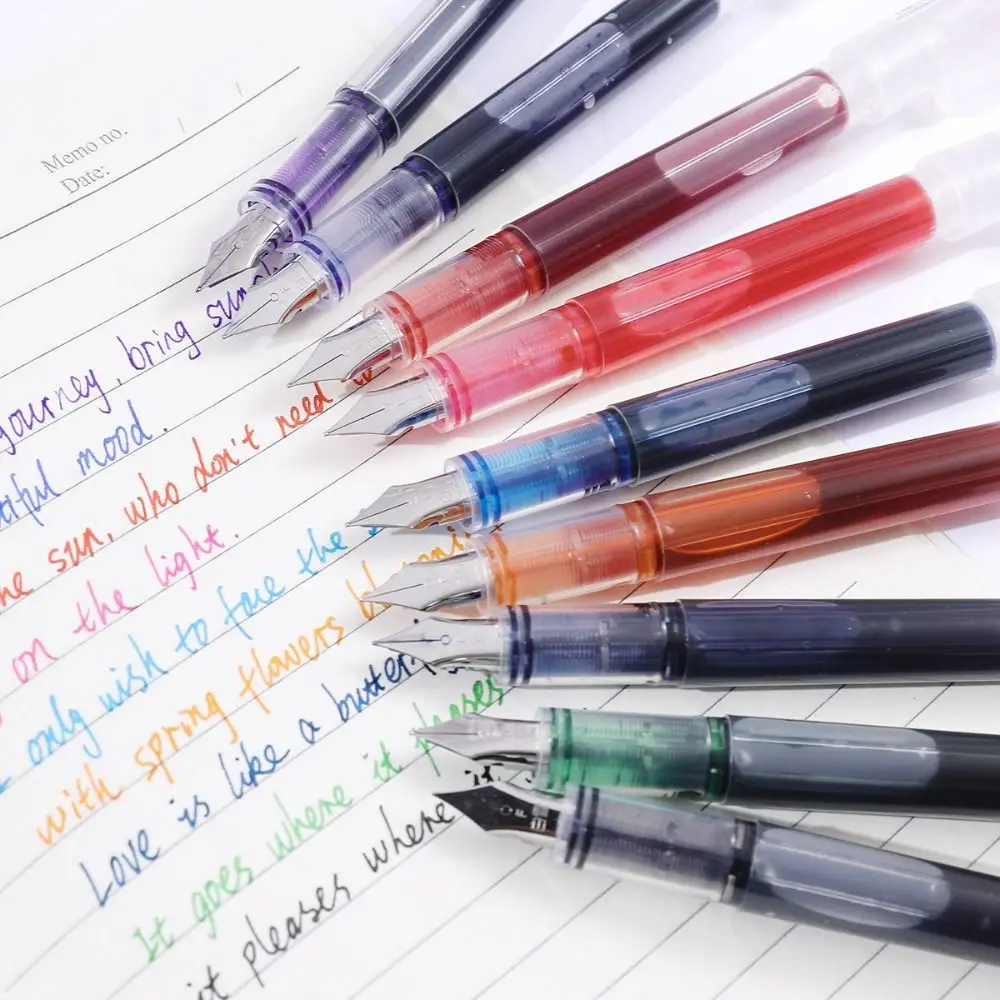 Memo no.
Date:
journey, bring
mood.
sun, who don't need
on the light.
only wish to face the
with spring flowers
Love is like a
It goes where it pleases
it pleases where it
F